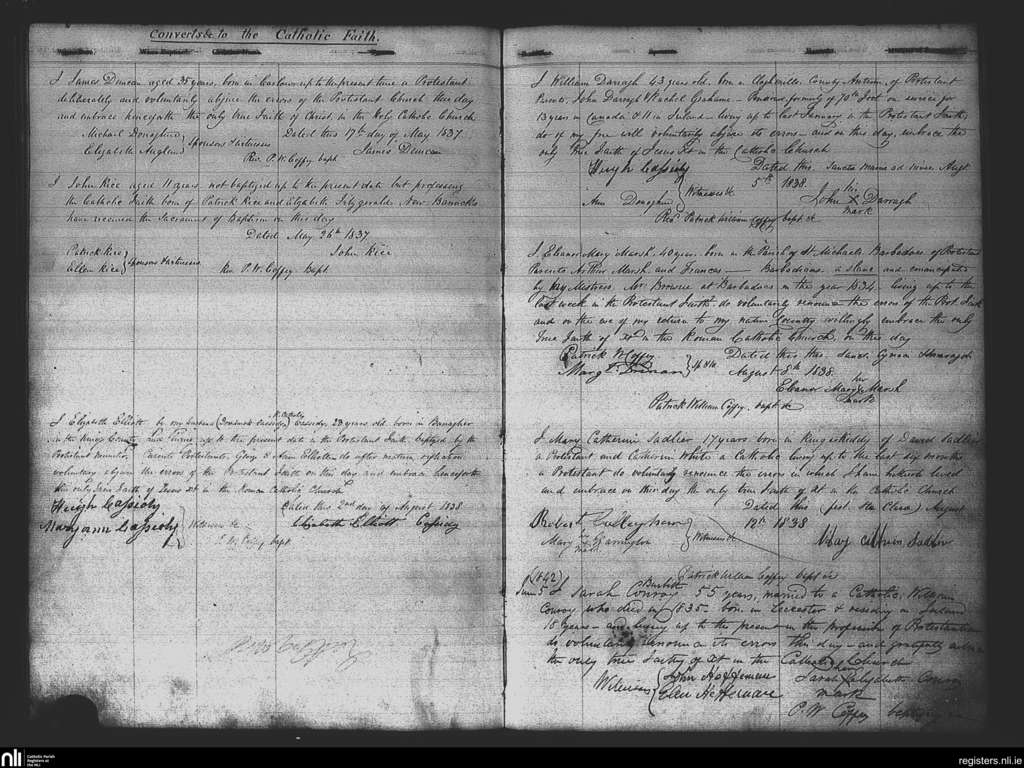 Converts &c to the Catholic Faith.
I James Duncan aged 35 years, born in up to the present time a Protestant
deliberately and voluntarily abjure the errors of the Protestant Church this day
and embrace henceforth the only true Faith of Christ in the Holy Catholic Church
Michael Donaghue Dated this 17th day of May 1837.
Elizabeth Sponsors & witnesses James Duncan
Rev. P. W. Coffey bapt
I John Rice aged 11 years, not baptized up to the present date but professing
the Catholic Faith born of Patrick Rice and Elizabeth Fitzgerald New Barracks
have received the Sacrament of Baptism on this day
Dated May 26th 1837
Patrick Rice John Rice
Ellen Rice Sponsors & witnesses Rev. P. W. Coffey Bapt
I Elizabeth Elliott by my husband Cassidy 23 years old born in Banagher
in the Kings County and living up to the present date in the Protestant Faith, baptized by the
Protestant minister, Parents Protestants, & Ann Elliott do after mature reflection
voluntary abjure the errors of the Protestant Faith on this day and embrace henceforth
the only true Faith of Jesus Xt in the Roman Catholic Church
Hugh Cassidy Dated this 2nd day of August 1838
Mary ann Cassidy Witnesses Elizabeth Elliott Cassidy
P. W. Coffey bapt
I William Darragh 43 years old, born in County Antrim, of Protestant
Parents, John Darragh & Rachel Grahame - Pensioner formerly of 70th Foot on service for
13 years in Canada & 11 in Ireland - living up to last January in the Protestant Faith,
do of my free will voluntarily abjure its errors - and on this day, embrace the
only true Faith of Jesus Xt in the Catholic Church
Hugh Cassidy Dated this, Sancta Maria ad nives Augt
5th 1838.
Ann Donaghue Witnesses his
John X Darragh
mark
Revd Patrick William Coffey bapt
I Eleanor Mary Marsh, 40 years, born in the Parish of St. Michaels Barbadoes of Protestant
Parents Arthur Marsh and Frances - Barbadians, a slave and emancipated
by my Mistress, Browne at Barbadoes in the year 1834 living up to the
last week in the Protestant Faith do voluntarily renounce the errors of the Prot. Faith
and on the eve of my return to my native Country willingly embrace the only
true Faith of Xt in the Roman Catholic Church, on this day
Patrick W Coffey Dated this
August 8th 1838.
Eleanor Mary Marsh
her mark
Patrick William Coffey, bapt
I Mary Catherine Sadlier 17 years born in Ringaskiddy of David Sadlier
a Protestant and Catherine White a Catholic living up to the last six months
a Protestant do voluntary renounce the errors in which I have hitherto lived
and embrace on this day the only true Faith of Xt in the Catholic Church
Dated this (fest. Sta Clara) August
12th 1838
Robert
Mary Garrington Witnesses Mary Sadlier
mark
Patrick William Coffey bapt
(1842)
June 5 I Sarah Conroy 55 years, married to a Catholic, William
Conroy who died in 1835 - born in Leicester & residing in Ireland
18 years - and living up to the present in the profession of Protestantism
do voluntarily renounce its errors this day - and
the only true Faith of Xt in the Catholic Church
Witnesses John Heffernan Sarah Elizabeth Conroy
Ellen Heffernan mark
P. W. Coffey
nli
Catholic Parish
Registers at
the NLI
registers.nli.ie